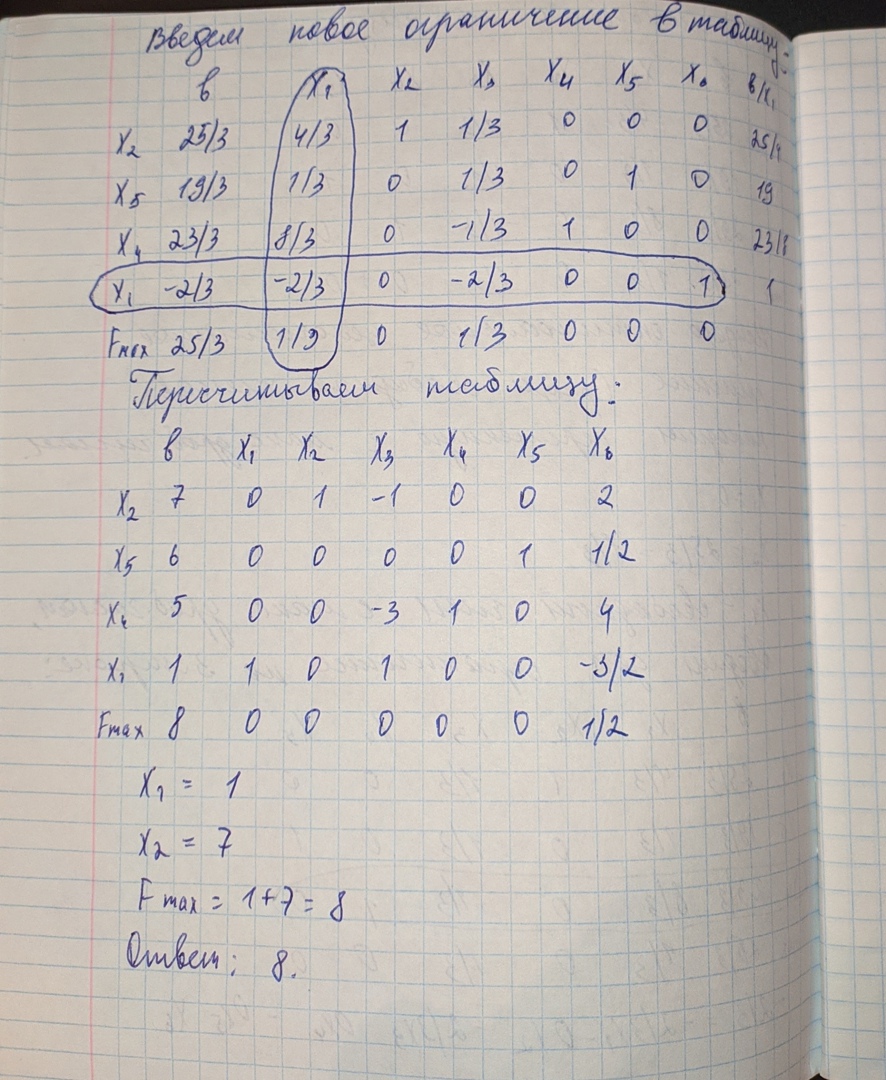 Введем новое ограничение в таблицу:
в x₁ x₂ x₃ x₄ x₅ x₆ в/x₁
x₂ 25/3 4/3 1 1/3 0 0 0 25/4
x₅ 19/3 1/3 0 1/3 0 1 0 19
x₄ 23/3 8/3 0 -1/3 1 0 0 23/8
x₁ -2/3 -2/3 0 -2/3 0 0 1 1
Fmax 25/3 1/3 0 1/3 0 0 0
Пересчитываем таблицу:
в x₁ x₂ x₃ x₄ x₅ x₆
x₂ 7 0 1 -1 0 0 2
x₅ 6 0 0 0 0 1 1/2
x₄ 5 0 0 -3 1 0 4
x₁ 1 1 0 1 0 0 -3/2
Fmax 8 0 0 0 0 0 1/2
x₁ = 1
x₂ = 7
Fmax = 1+7 = 8
Ответ: 8.